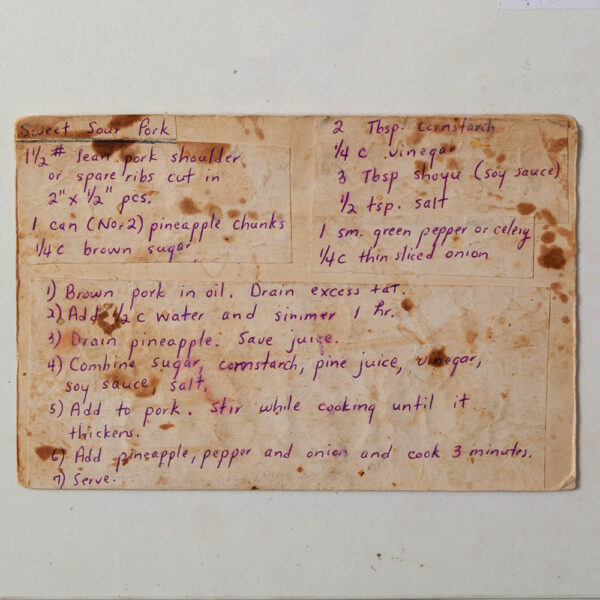 Sweet Sour Pork
1 1/2 # lean pork shoulder
or spare ribs cut in
2" x 1/2" pcs.
1 can (No. 2) pineapple chunks
1/4 c brown sugar
2 Tbsp. cornstarch
1/4 c vinegar
3 Tbsp shoyu (soy sauce)
1/2 tsp. salt
1 sm. green pepper or celery
1/4 c thin sliced onion
1) Brown pork in oil. Drain excess fat.
2) Add 1/2 c water and simmer 1 hr.
3) Drain pineapple. Save juice.
4) Combine sugar, cornstarch, pine juice, vinegar,
soy sauce, salt.
5) Add to pork. Stir while cooking until it
thickens.
6) Add pineapple, pepper and onion and cook 3 minutes.
7) Serve.